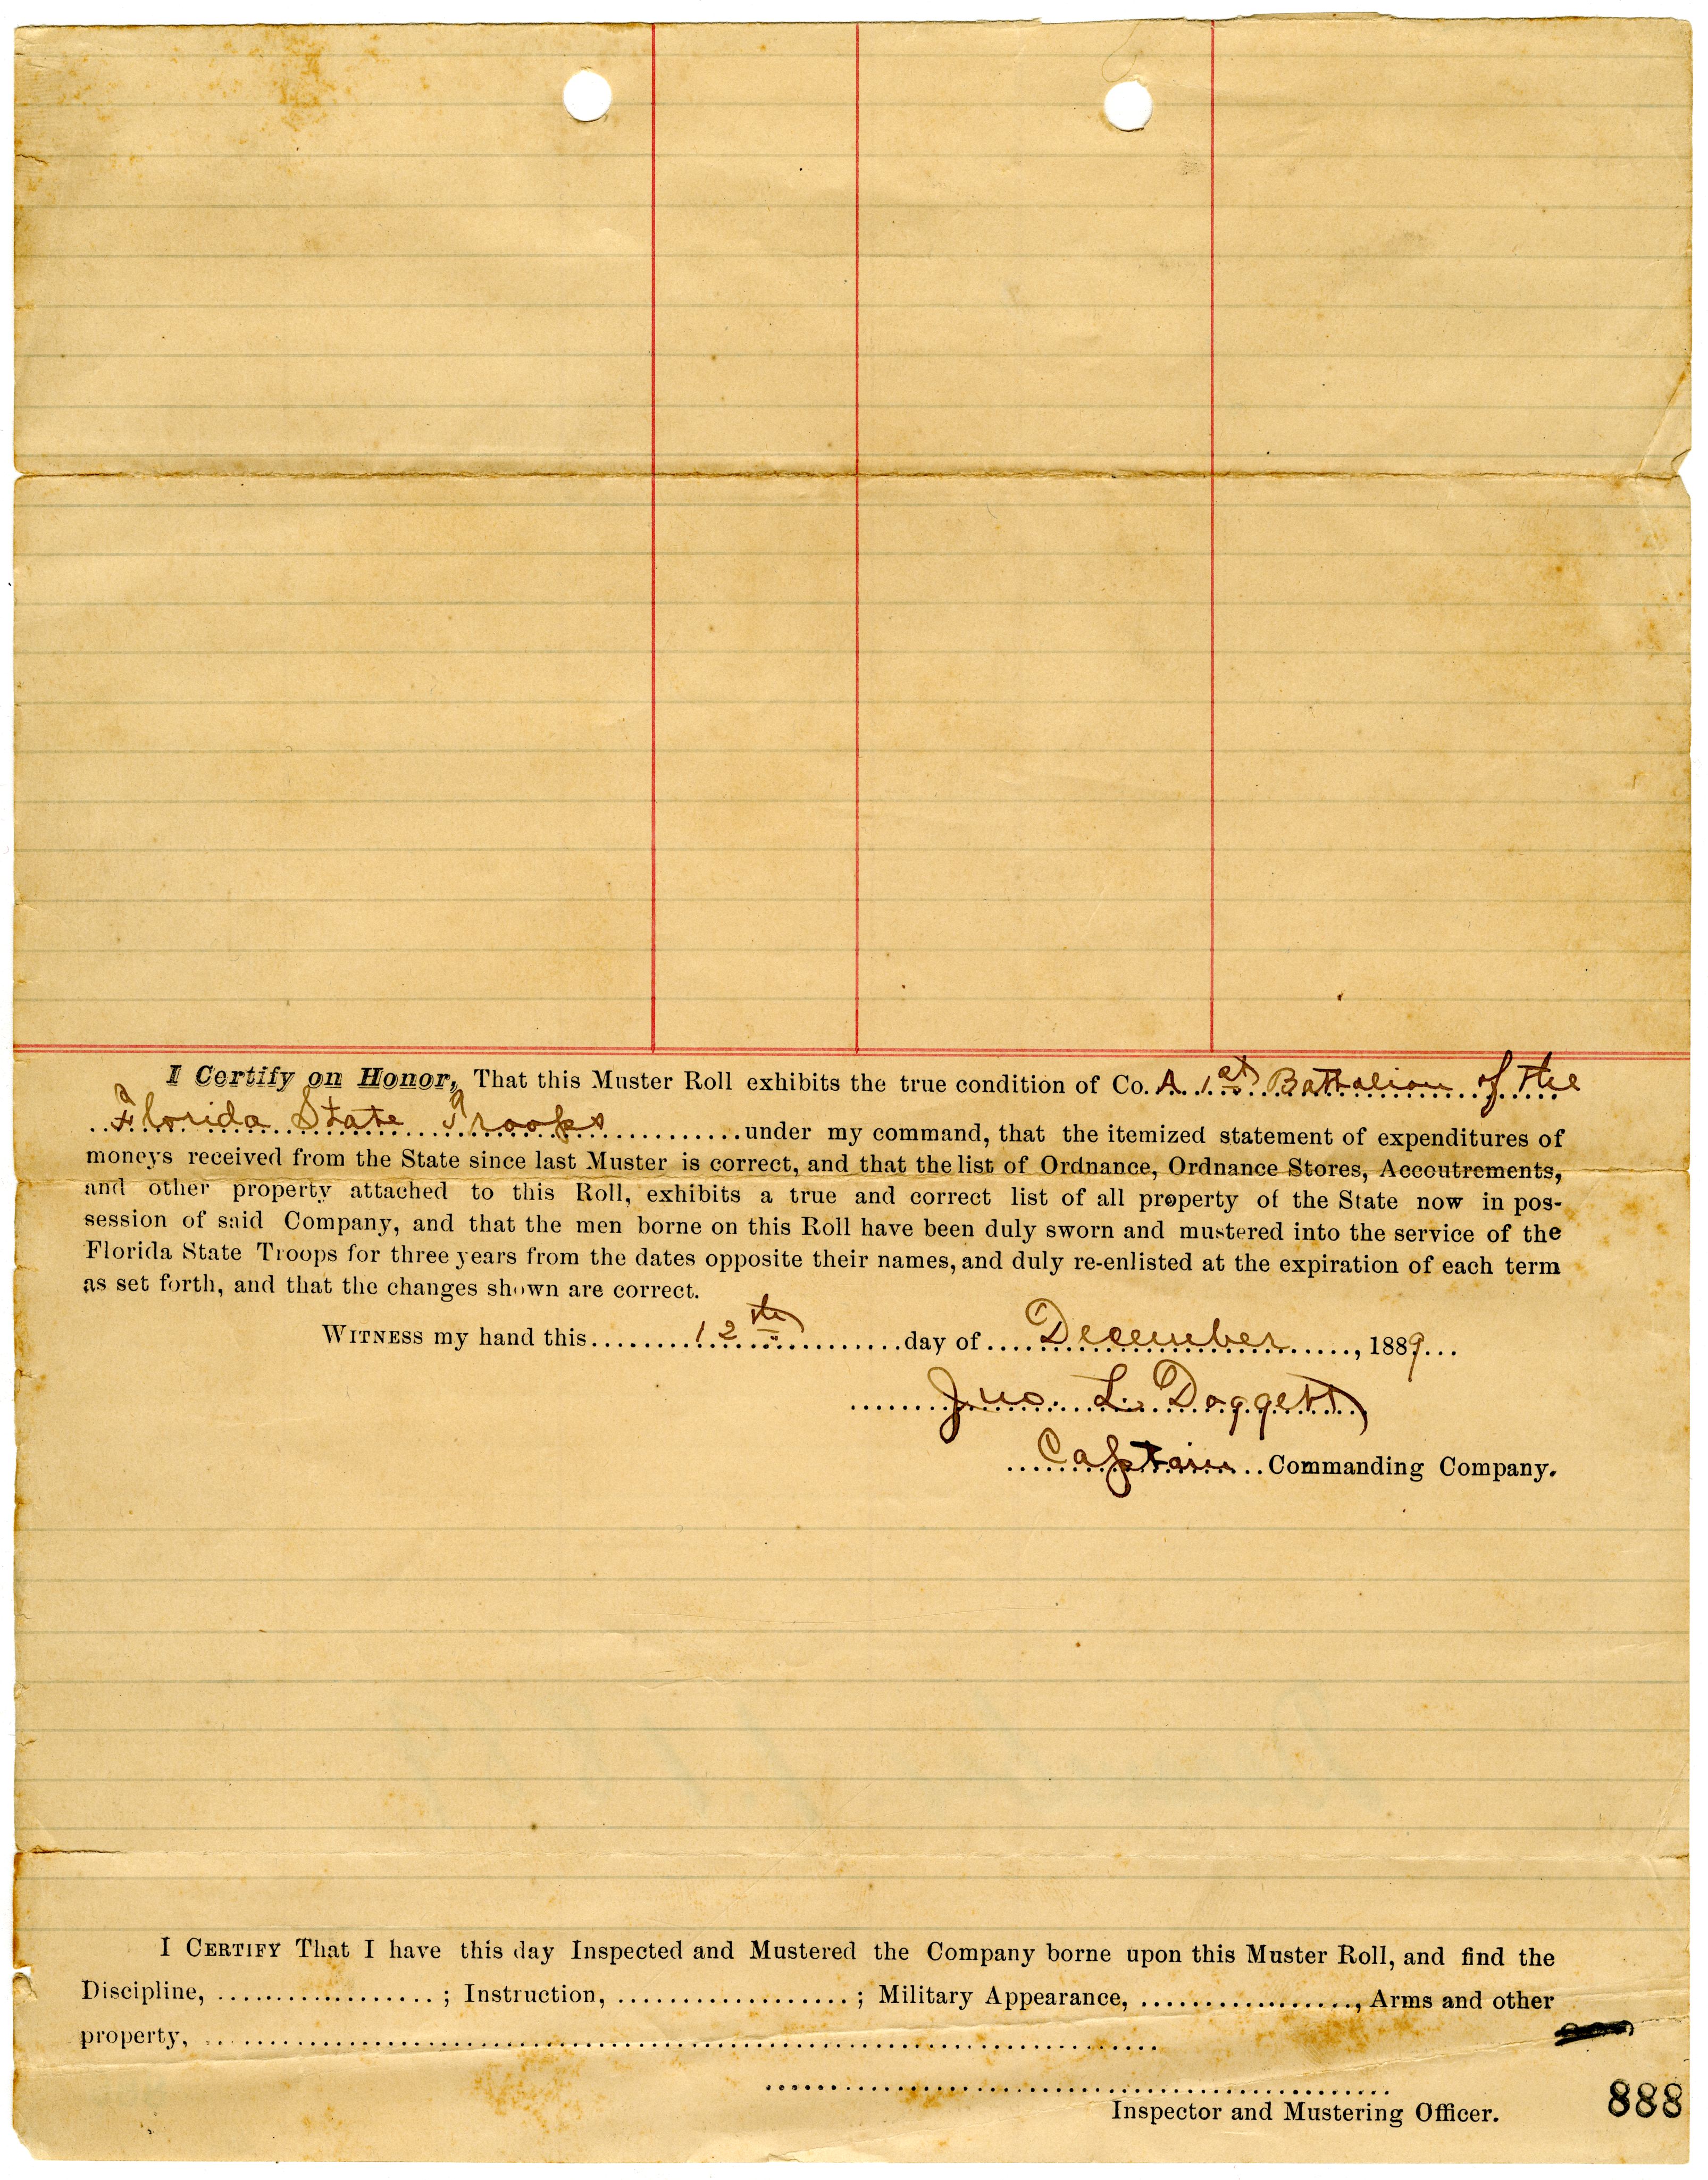 I Certify on Honor, That this Muster Roll exhibits the true condition of Co. A. 1st Battalion of the
Florida State Troops ............ under my command, that the itemized statement of expenditures of
moneys received from the State since last Muster is correct, and that the list of Ordnance, Ordnance Stores, Accoutrements,
and other property attached to this Roll, exhibits a true and correct list of all property of the State now in pos-
session of said Company, and that the men borne on this Roll have been duly sworn and mustered into the service of the
Florida State Troops for three years from the dates opposite their names, and duly re-enlisted at the expiration of each term
as set forth, and that the changes shown are correct.
WITNESS my hand this ........ 12th ........ day of .... December ......, 1889...
Jno. L. Doggett
Captain .. Commanding Company.
I CERTIFY That I have this day Inspected and Mustered the Company borne upon this Muster Roll, and find the
Discipline, ..................; Instruction, ....................; Military Appearance, .................., Arms and other
property, ................................................................................
Inspector and Mustering Officer.
888